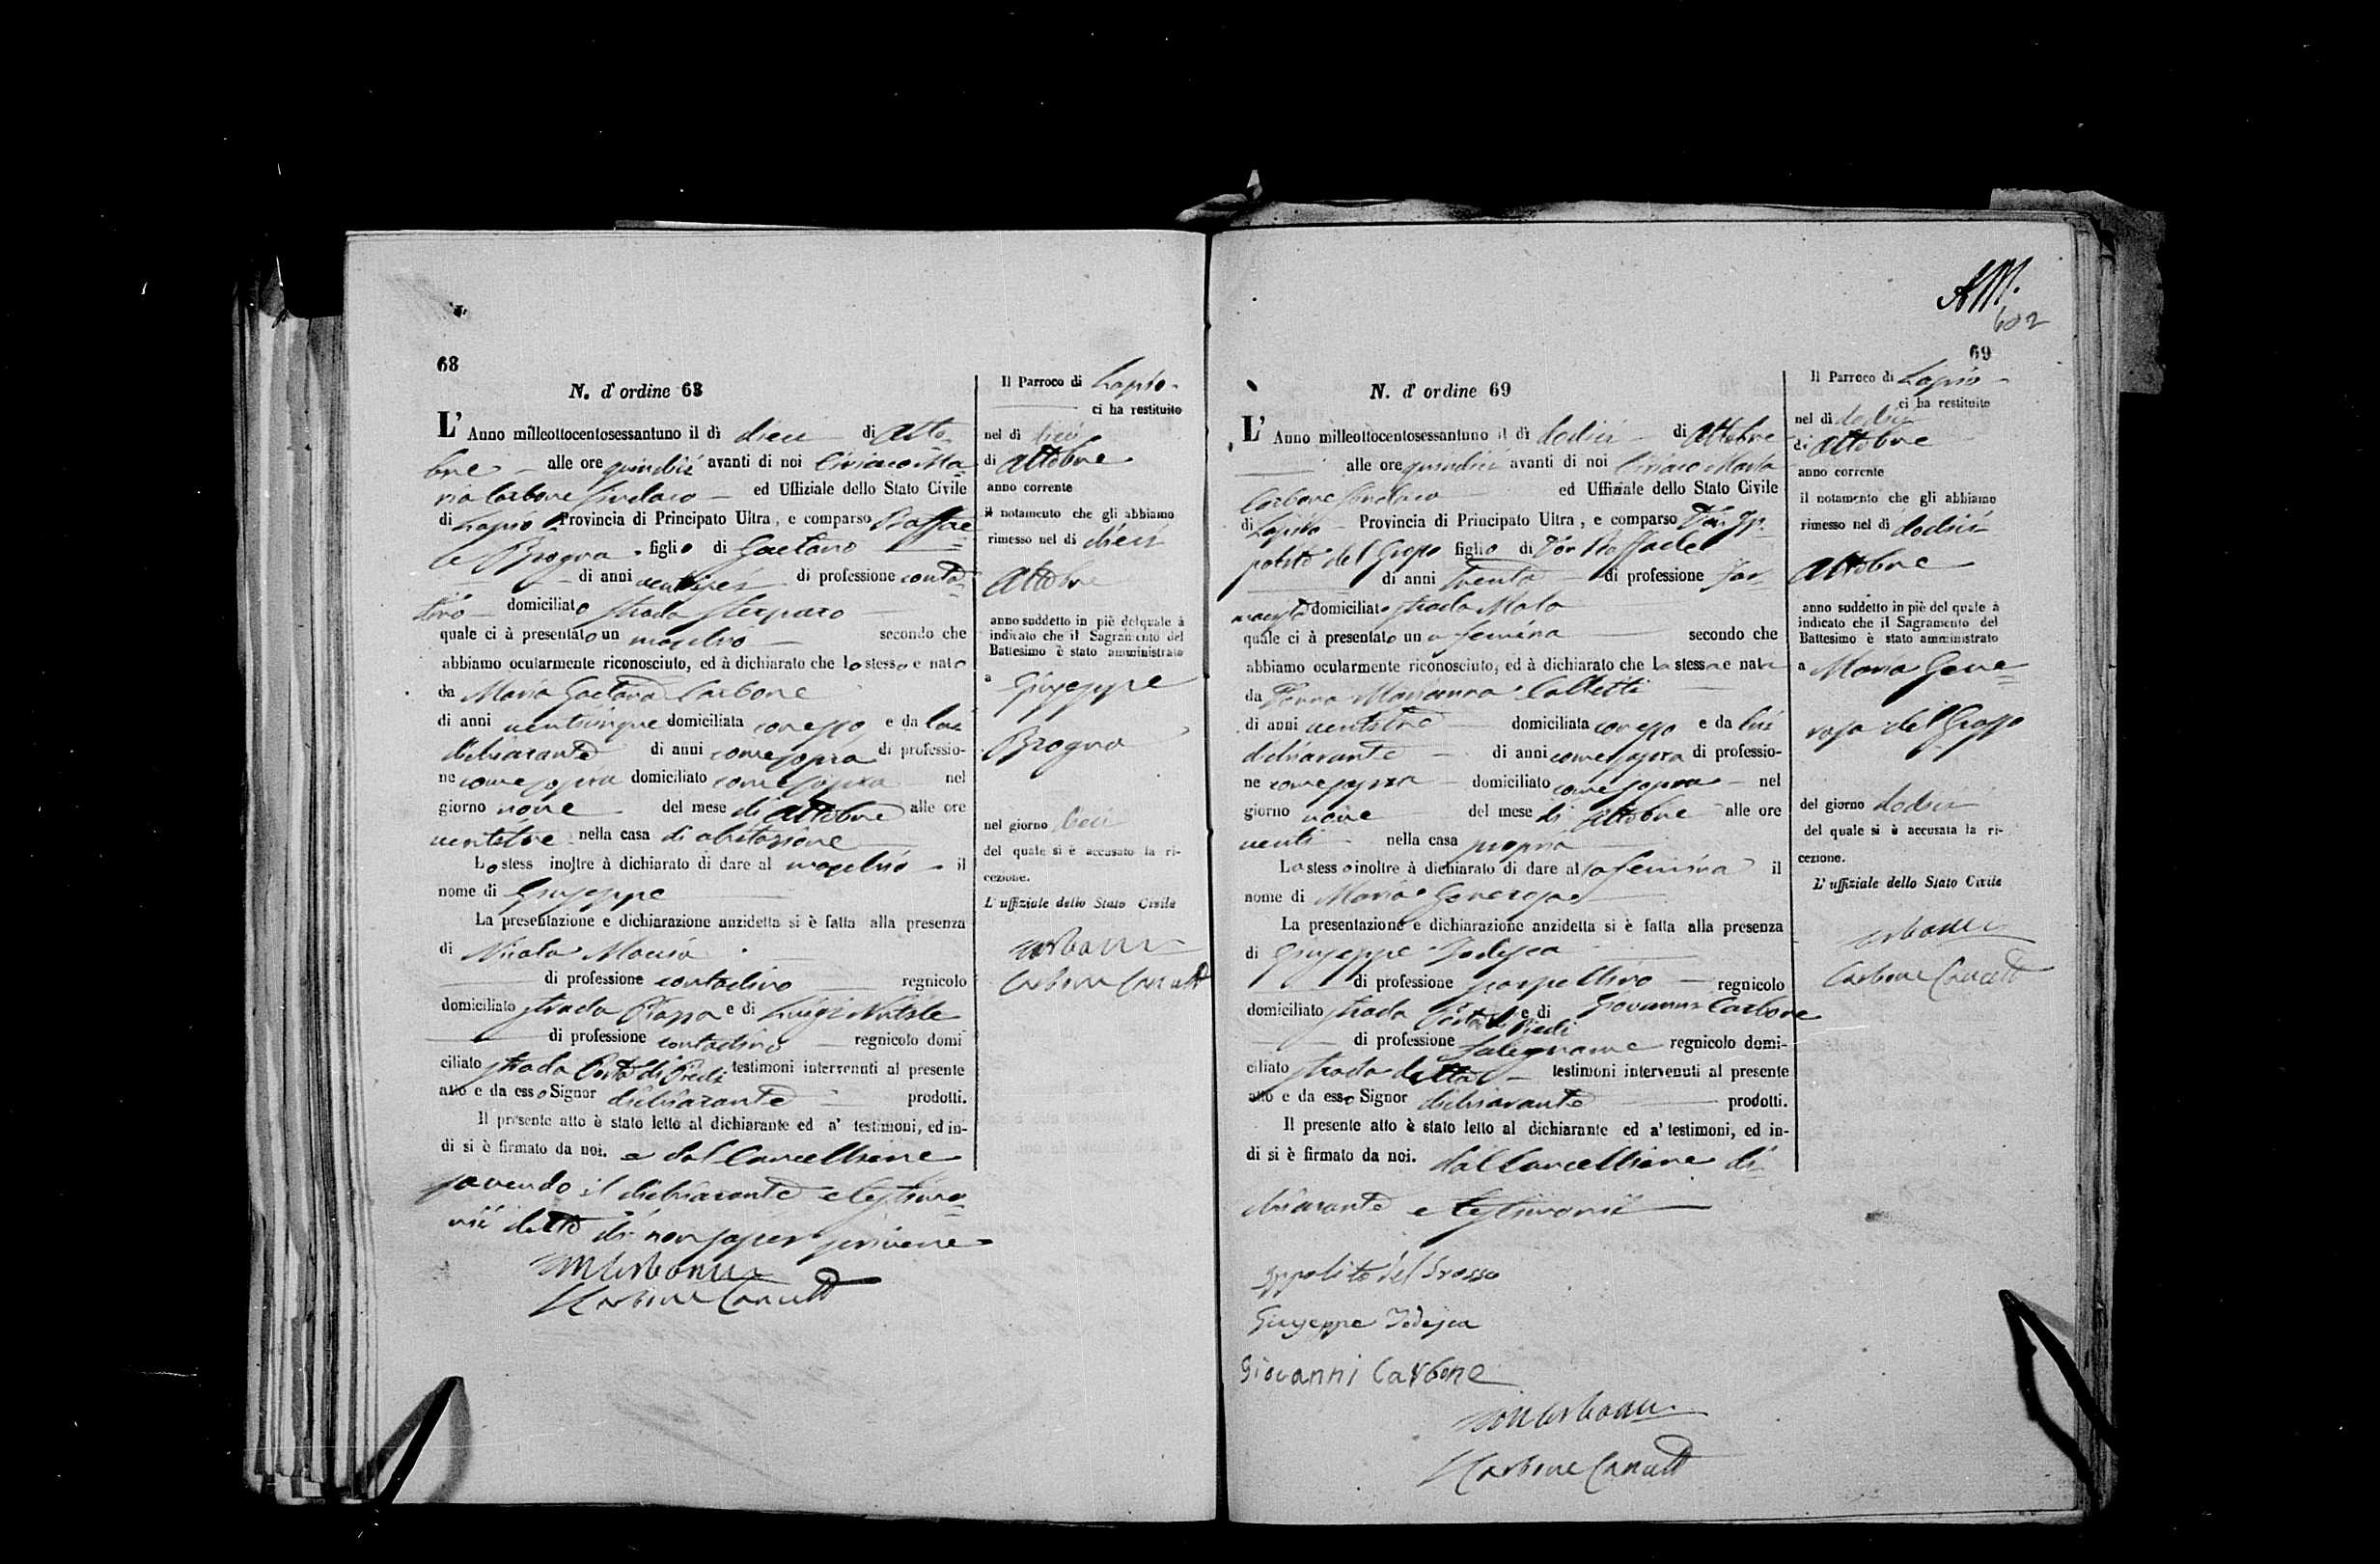 68
N. d'ordine 68
L'Anno milleottocentosessantuno il dì dieci di Otto-
bre alle ore quindici avanti di noi Ciriaco Ma-
ria Carbone Sindaco ed Uffiziale dello Stato Civile
di Lapio Provincia di Principato Ultra, e comparso Raffae
le Brogna figlio di Gaetano
di anni ventisei di professione conta-
dino domiciliato strada
quale ci à presentato un maschio secondo che
abbiamo ocularmente riconosciuto, ed à dichiarato che lo stesso e nato
da Maria Gaetana Carbone
di anni venticinque domiciliata con esso e da lui
dichiarante di anni come sopra di professio-
ne come sopra domiciliato come sopra nel
giorno nove del mese di Ottobre alle ore
ventitre nella casa di abitazione
Lo stess inoltre à dichiarato di dare al maschio il
nome di Giuseppe
La presentazione e dichiarazione anzidetta si è fatta alla presenza
di Nicola
di professione contadino regnicolo
domiciliato strada Piazza e di Luigi
di professione contadino regnicolo domi
ciliato strada Porta di Piedi testimoni intervenuti al presente
atto e da esso Signor dichiarante prodotti.
Il presente atto è stato letto al dichiarante ed a' testimoni, ed in-
di si è firmato da noi. e dal Cancelliere
avendo il dichiarante e testimo-
nii detto di non saper scrivere
Carbone
Carbone
Il Parroco di Lapio
ci ha restituito
nel dì dieci
di Ottobre
anno corrente
il notamento che gli abbiamo
rimesso nel di dieci
Ottobre
anno suddetto in piè del quale à
indicato che il Sagramento del
Battesimo è stato amministrato
a Giuseppe
Brogna
nel giorno dieci
del quale si è accusato la ri-
cezione.
L'uffiziale dello Stato Civile
Carbone
AM.
602
69
N. d'ordine 69
L'Anno milleottocentosessantuno il dì dodici di Ottobre
alle ore quindici avanti di noi Ciriaco Maria
Carbone Sindaco ed Uffiziale dello Stato Civile
di Lapio Provincia di Principato Ultra, e comparso Don Ip-
polito del Grosso figlio di Don Raffaele
di anni trenta di professione Far-
macista domiciliato strada Mala
quale ci à presentato una femina secondo che
abbiamo ocularmente riconosciuto, ed à dichiarato che la stessa e nata
da Donna Marianna Colletti
di anni ventitre domiciliata con esso e da lui
dichiarante di anni come sopra di professio-
ne come sopra domiciliato come sopra nel
giorno nove del mese di Ottobre alle ore
venti nella casa propria
Lo stesso inoltre à dichiarato di dare alla femina il
nome di Maria Generosa
La presentazione e dichiarazione anzidetta si è fatta alla presenza
di Giuseppe Todesca
di professione scarpellino regnicolo
domiciliato strada Porta di Piedi e di Giovanni Carbone
di professione falegname regnicolo domi-
ciliato strada detta testimoni intervenuti al presente
atto e da esso Signor dichiarante prodotti.
Il presente atto è stato letto al dichiarante ed a' testimoni, ed in-
di si è firmato da noi. dal Cancelliere di-
chiarante e testimonii
Ippolito del Grosso
Giuseppe Todesca
Giovanni Carbone
Carbone
Il Parroco di Lapio
ci ha restituito
nel di dodici
di Ottobre
anno corrente
il notamento che gli abbiamo
rimesso nel di dodici
Ottobre
anno suddetto in piè del quale à
indicato che il Sagramento del
Battesimo è stato amministrato
a Maria Gene-
rosa del Grosso
del giorno dodici
del quale si è accusata la ri-
cezione.
L'uffiziale dello Stato Civile
Carbone